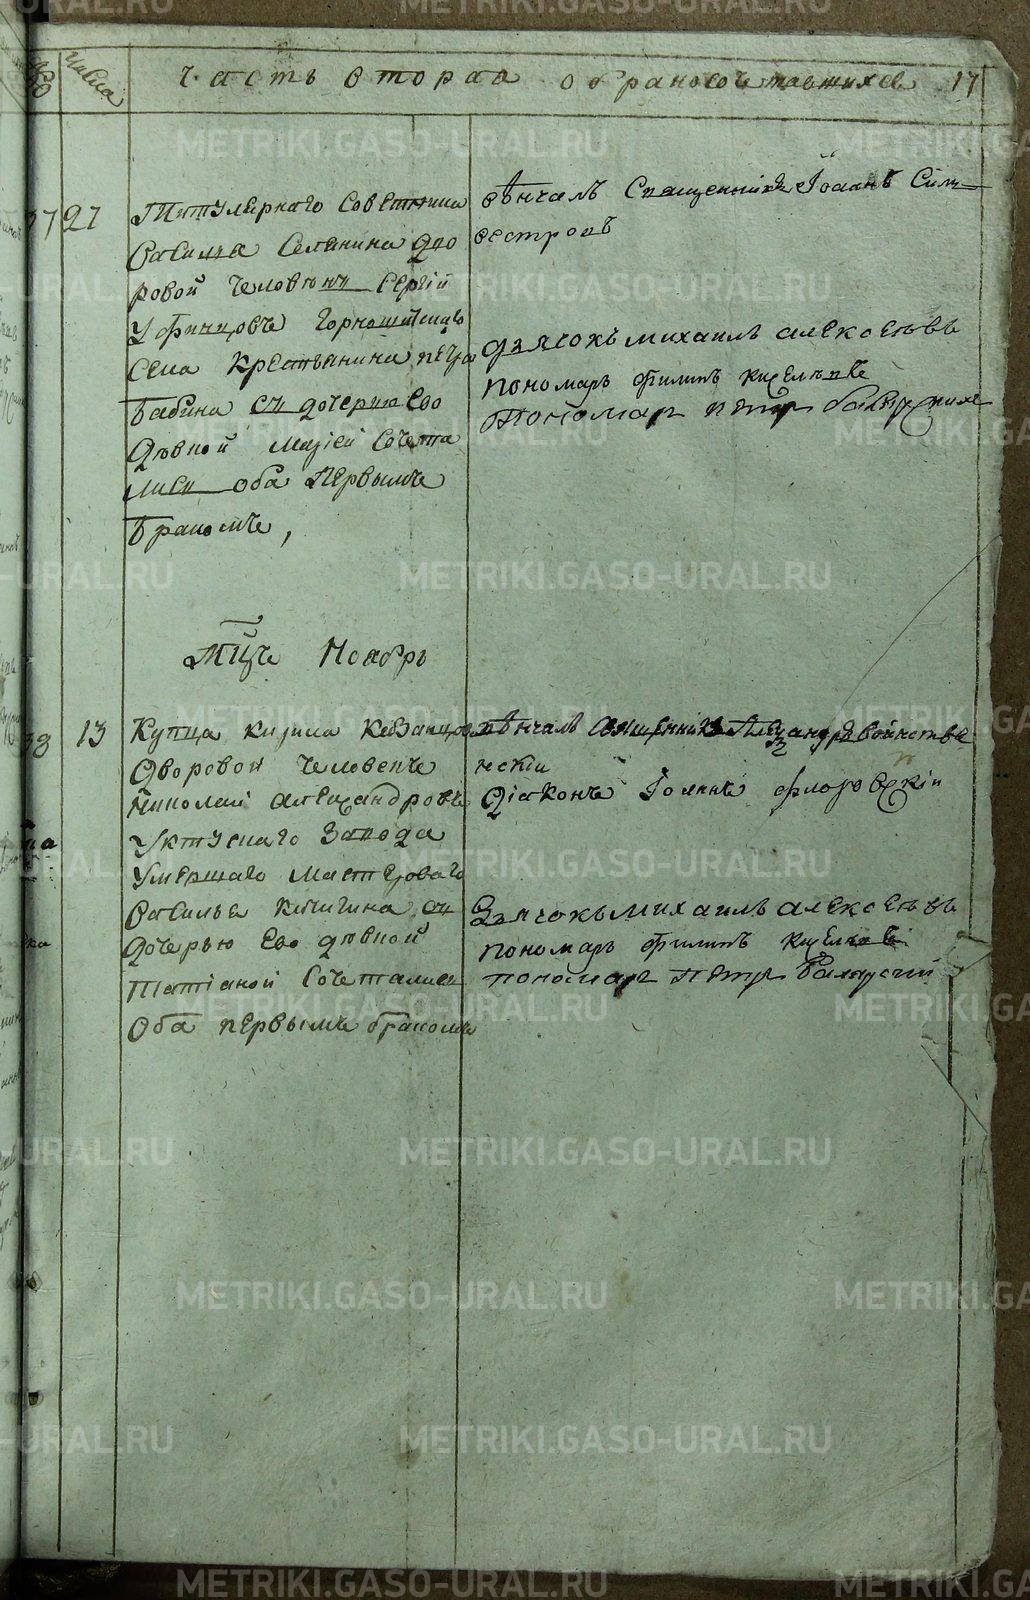 Числа
Часть вторая о браносочетавшихся 17
37 27
Титулярнаго Советника
Василья Селянина дво
ровой человекъ Сергiй
Уфинцовъ Горнощитскаго
села крестьянина Петра
Бабина съ дочерию Ево
девкой Марiей сочета
лися оба Первымъ
бракомъ,
венчалъ Священникъ Iоаннъ Силь
вестровъ
дьячокъ михаилъ алексеевъ
пономарь филипъ
Пономарь петръ
Мцъ Ноябрь
38 13
Купца кирила Казанцова
дворовой человекъ
Николай александровъ
Уктускаго завода
Умершаго мастероваго
Василья Кичигина съ
дочерью Ево девкой
татiаной сочетались
Оба первымъ бракомъ
венчалъ священникъ
нскiй
Дiаконъ Iоаннъ флоровскiй
Дьячокъ михаилъ алексеевъ
пономарь филипъ
пономарь Петръ
METRIKI.GASO-URAL.RU